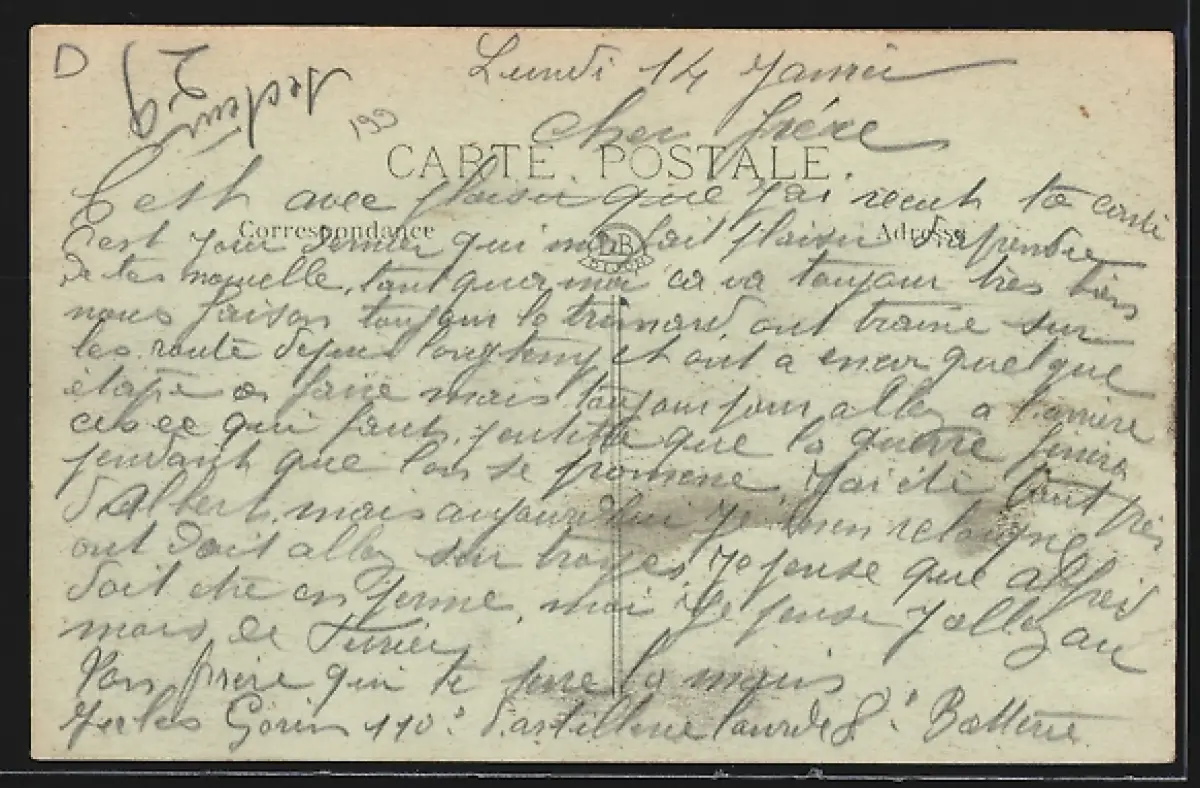 D
Secteur
199
Lundi 14 Janvier
Cher frére
CARTE POSTALE.
C'esth avec plaisir que j'ai recut ta carte
Correspondance
DB
DIJON
Adresse
C'est jour dernier qui m'a fait plaisir d'apendre
de tes nouvelle, tant qua moi ca va toujour très bien
nous faison toujour le trimard, ont traine sur
les route depui longtemp et ont a encor quelque
étape a faire mais toujour pour allez a l'arriere
ces ce qui faut, peutètre que la guerre finira
pendant que l'on se promene, j'ai été tout près
d'Albert, mais aujourd'hui je m'en reloigne
ont doit allez sur troyes, je pense que Alfred
doit être en perme, moi je pense y allez au
mois de Fevrier
Ton frere qui te serre la main
Jules Gorin 110e d'artillerie lourde 8e Batterie